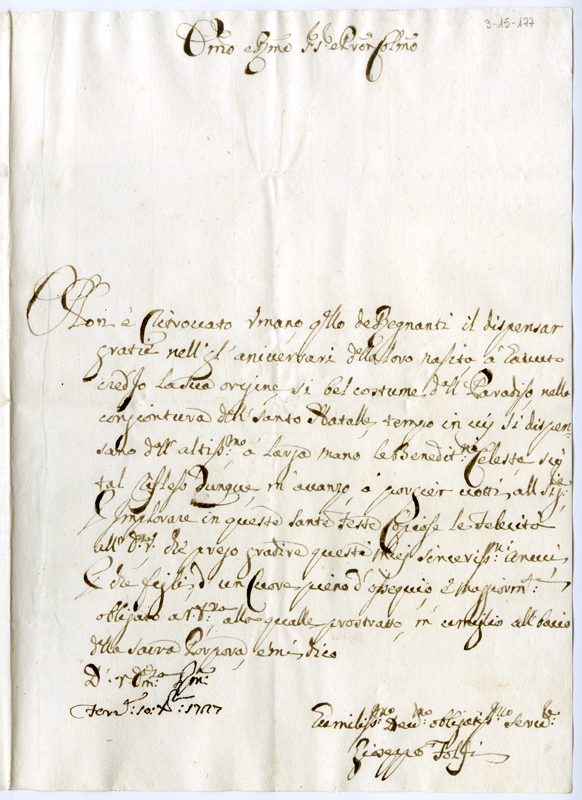 3-15-177
Em̃o e Rm̃o Sig.r e Pron Colm̃o
Non è Ritrovato Umano q̃llo de Regnanti il dispensar
gratie nell'gl'aniversari della loro nascita, à havuto
credo la sua origine si bel costume dall Paradiso nella
congiontura dell Santo Natalle, tempo in cuj si dispen-
sano dall altiss:mo à larga mano le Benedit:ni Celeste
tal Riflesso Dunque m'avanzo à porgier votti all Sig:
implorare in queste sante feste Copiose le Felecità
che prego gradire questi miei sincerissi:
che figli d'un Cuore pieno d'ossequio e maggiorm:te
obligato a alla qualle prostrato, m'umiglio all bacio
della sacra Porpora, e mi dico
D: V:
Ferr: 10: 1727
Humiliss:mo obligatiss:mo
Gioseppe